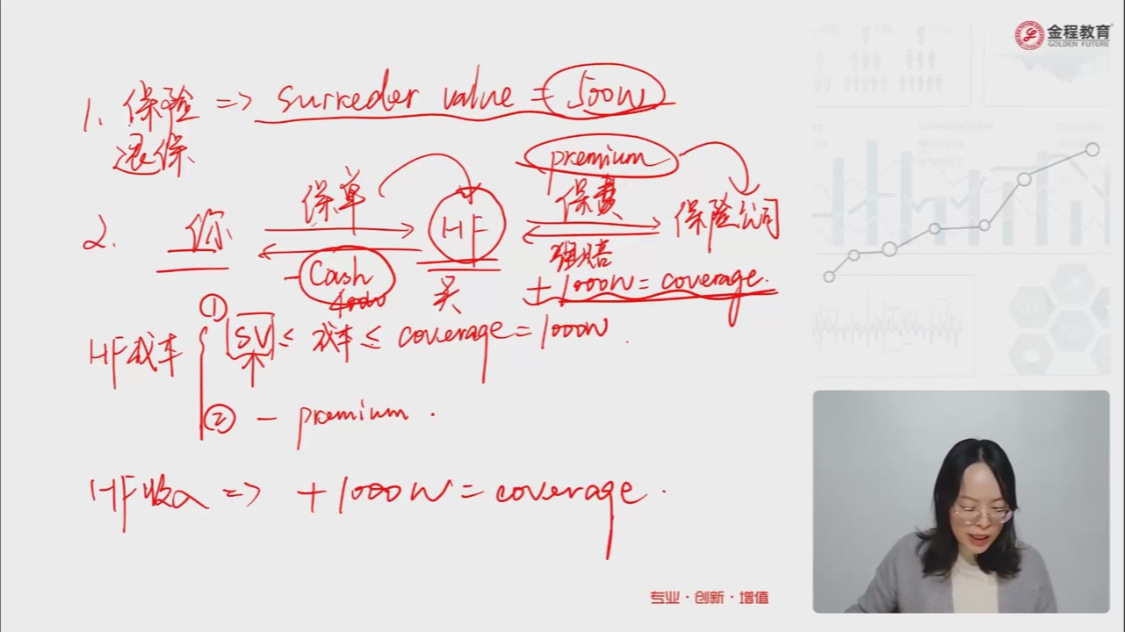 金程教育
GOLDEN FUTURE
1. 保险 => surreder value = 500W
退保
premium
保单 保费
2. 你 HF 保险公司
Cash 买 理赔
+1000W = coverage.
HF成本 ① SV ≤ 成本 ≤ coverage = 1000W.
② - premium.
HF收入 => +1000W = coverage.
专业·创新·增值